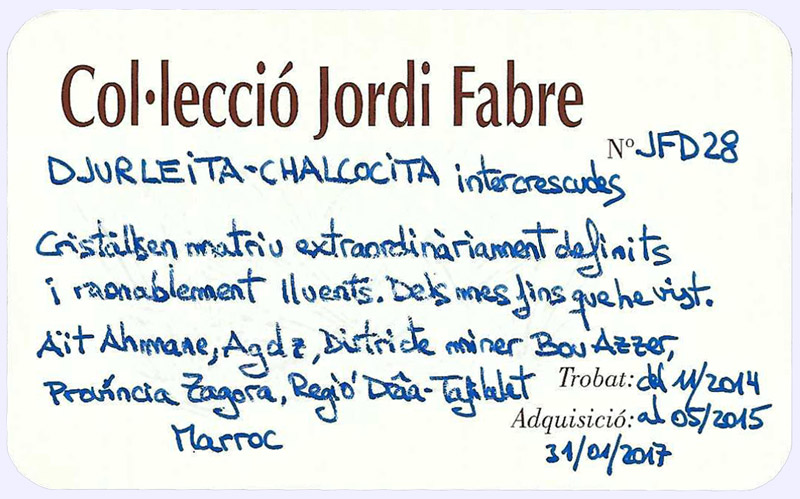 Col·lecció Jordi Fabre
Nº JFD28
DJURLEITA-CHALCOCITA intercrescudes
Cristalls en matriu extraordinàriament definits
i raonablement lluents. Dels mes fins que he vist.
Aït Ahmane, Agdz, Districte miner Bou Azzer,
Província Zagora, Regió Drâa-Tafilalet
Trobat: del 11/2014
Adquisició: al 05/2015
Marroc
31/01/2017